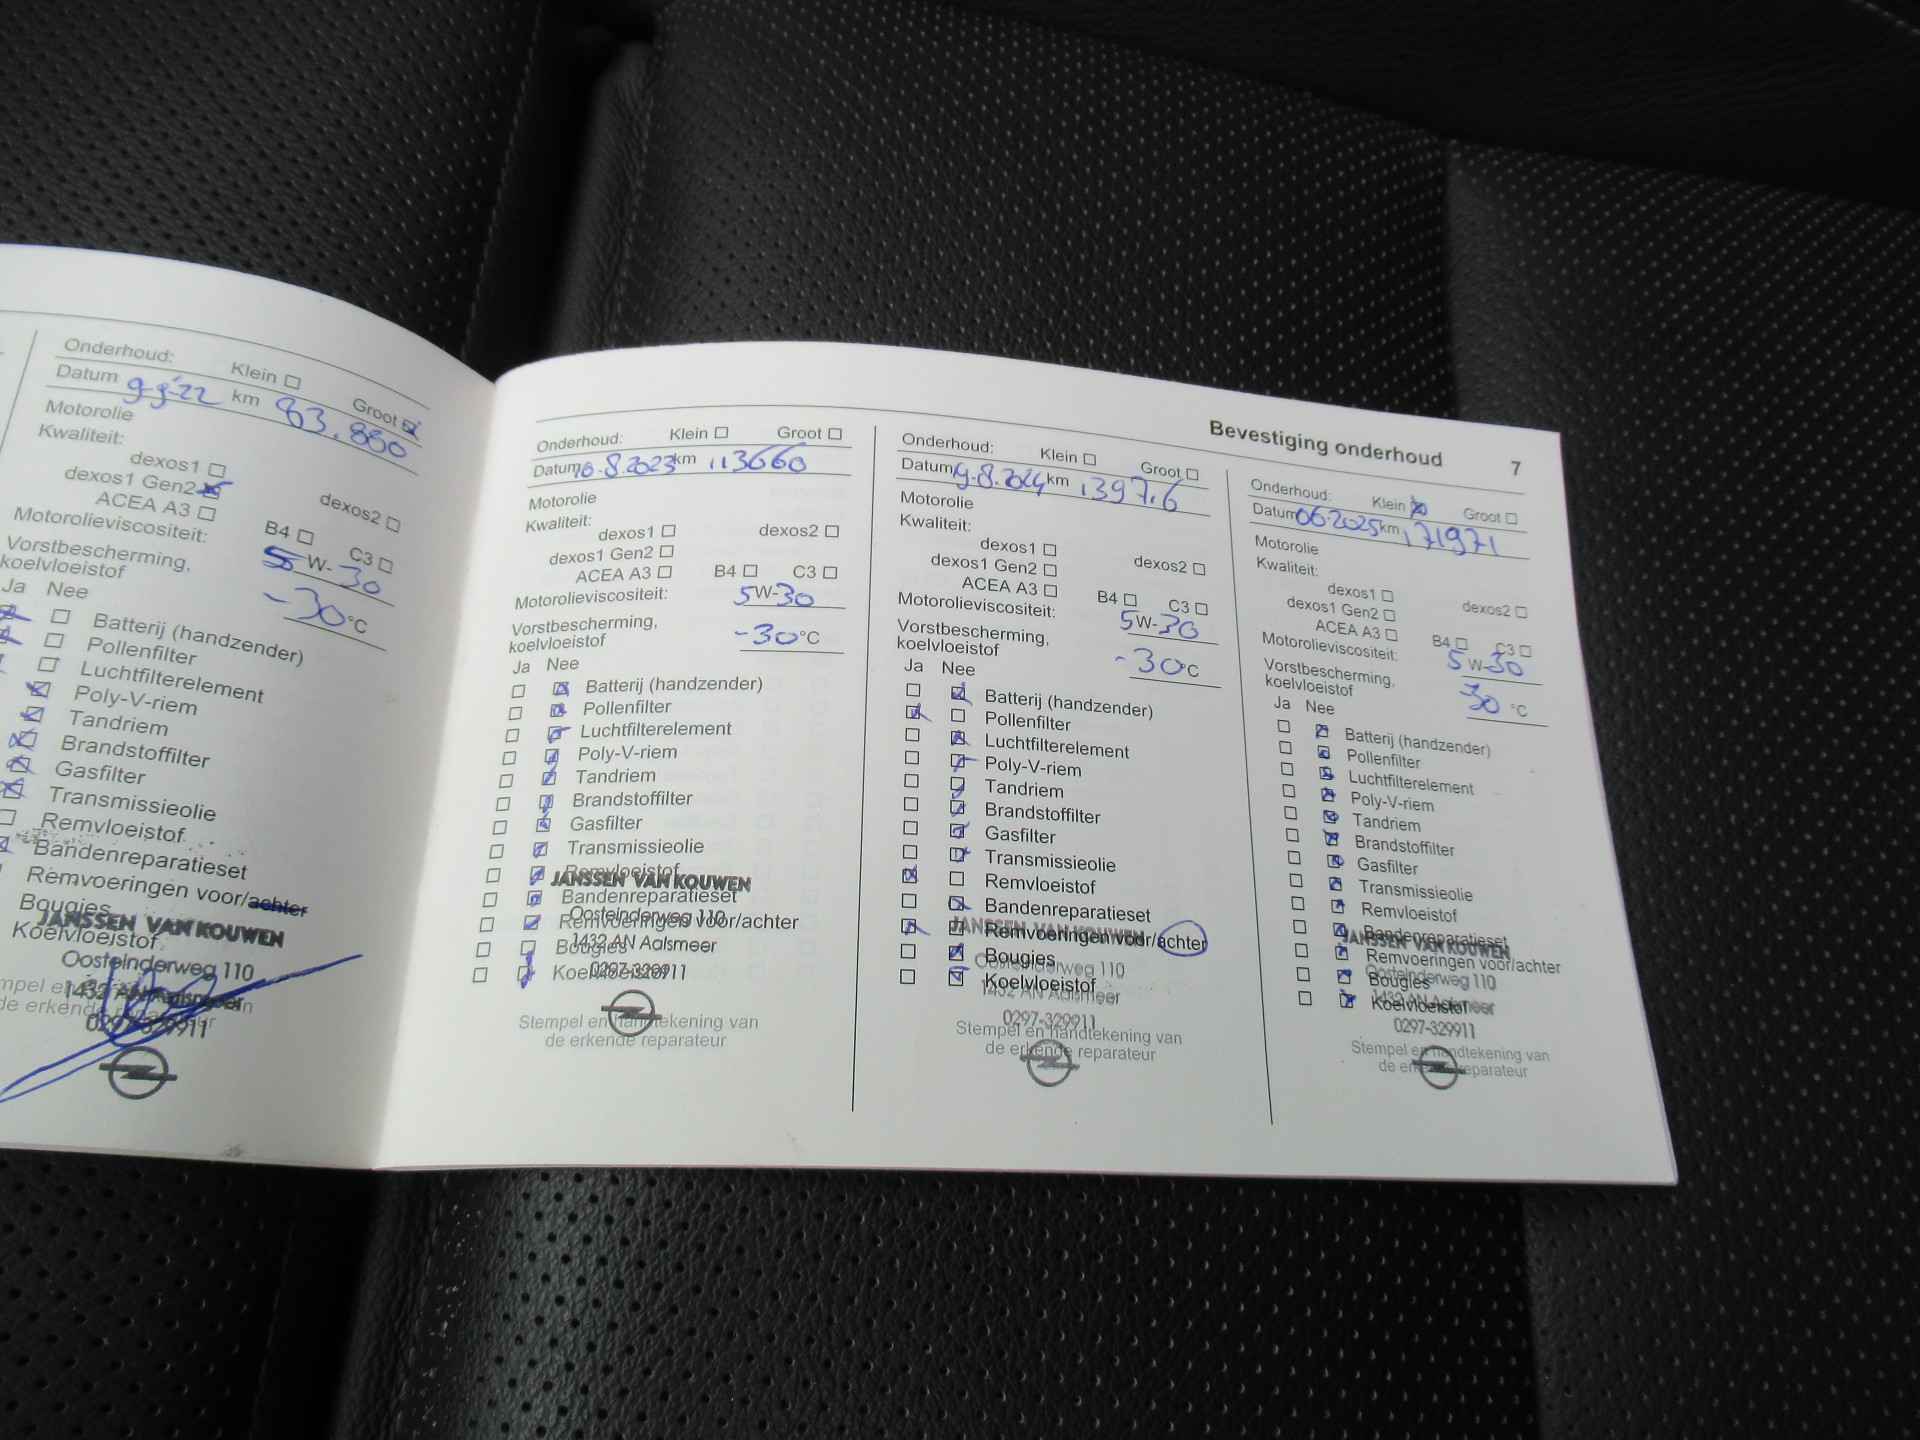 Onderhoud: Klein Groot
Datum 9-9-22 km 83.880
Motorolie
Kwaliteit:
dexos1
dexos1 Gen2 dexos2
ACEA A3 B4 C3
Motorolieviscositeit: 5W-30
Vorstbescherming,
koelvloeistof -30°C
Ja Nee
Batterij (handzender)
Pollenfilter
Luchtfilterelement
Poly-V-riem
Tandriem
Brandstoffilter
Gasfilter
Transmissieolie
Remvloeistof
Bandenreparatieset
Remvoeringen voor/achter
Bougies
JANSSEN VAN KOUWEN
Koelvloeistof
Oosteinderweg 110
1432 AN Aalsmeer
0297-329911
Bevestiging onderhoud 7
Onderhoud: Klein Groot
Datum 10.8.2023 km 113660
Motorolie
Kwaliteit:
dexos1 dexos2
dexos1 Gen2
ACEA A3 B4 C3
Motorolieviscositeit: 5W-30
Vorstbescherming,
koelvloeistof -30°C
Ja Nee
Batterij (handzender)
Pollenfilter
Luchtfilterelement
Poly-V-riem
Tandriem
Brandstoffilter
Gasfilter
Transmissieolie
Remvloeistof
JANSSEN VAN KOUWEN
Bandenreparatieset
Oosteinderweg 110
Remvoeringen voor/achter
1432 AN Aalsmeer
Bougies
0297-329911
Koelvloeistof
Stempel en handtekening van
de erkende reparateur
Onderhoud: Klein Groot
Datum 9.8.2024 km 1397.6
Motorolie
Kwaliteit:
dexos1
dexos1 Gen2 dexos2
ACEA A3 B4 C3
Motorolieviscositeit: 5W-30
Vorstbescherming,
koelvloeistof -30°C
Ja Nee
Batterij (handzender)
Pollenfilter
Luchtfilterelement
Poly-V-riem
Tandriem
Brandstoffilter
Gasfilter
Transmissieolie
Remvloeistof
Bandenreparatieset
JANSSEN VAN KOUWEN
Remvoeringen voor/achter
Bougies
Oosteinderweg 110
Koelvloeistof
1432 AN Aalsmeer
0297-329911
Stempel en handtekening van
de erkende reparateur
Onderhoud: Klein Groot
Datum 06.2025 km 171971
Motorolie
Kwaliteit:
dexos1
dexos1 Gen2 dexos2
ACEA A3 B4 C3
Motorolieviscositeit: 5W-30
Vorstbescherming,
koelvloeistof 30 °C
Ja Nee
Batterij (handzender)
Pollenfilter
Luchtfilterelement
Poly-V-riem
Tandriem
Brandstoffilter
Gasfilter
Transmissieolie
Remvloeistof
Bandenreparatieset
JANSSEN VAN KOUWEN
Remvoeringen voor/achter
Oosteinderweg 110
Bougies
1432 AN Aalsmeer
Koelvloeistof
0297-329911
Stempel en handtekening van
de erkende reparateur